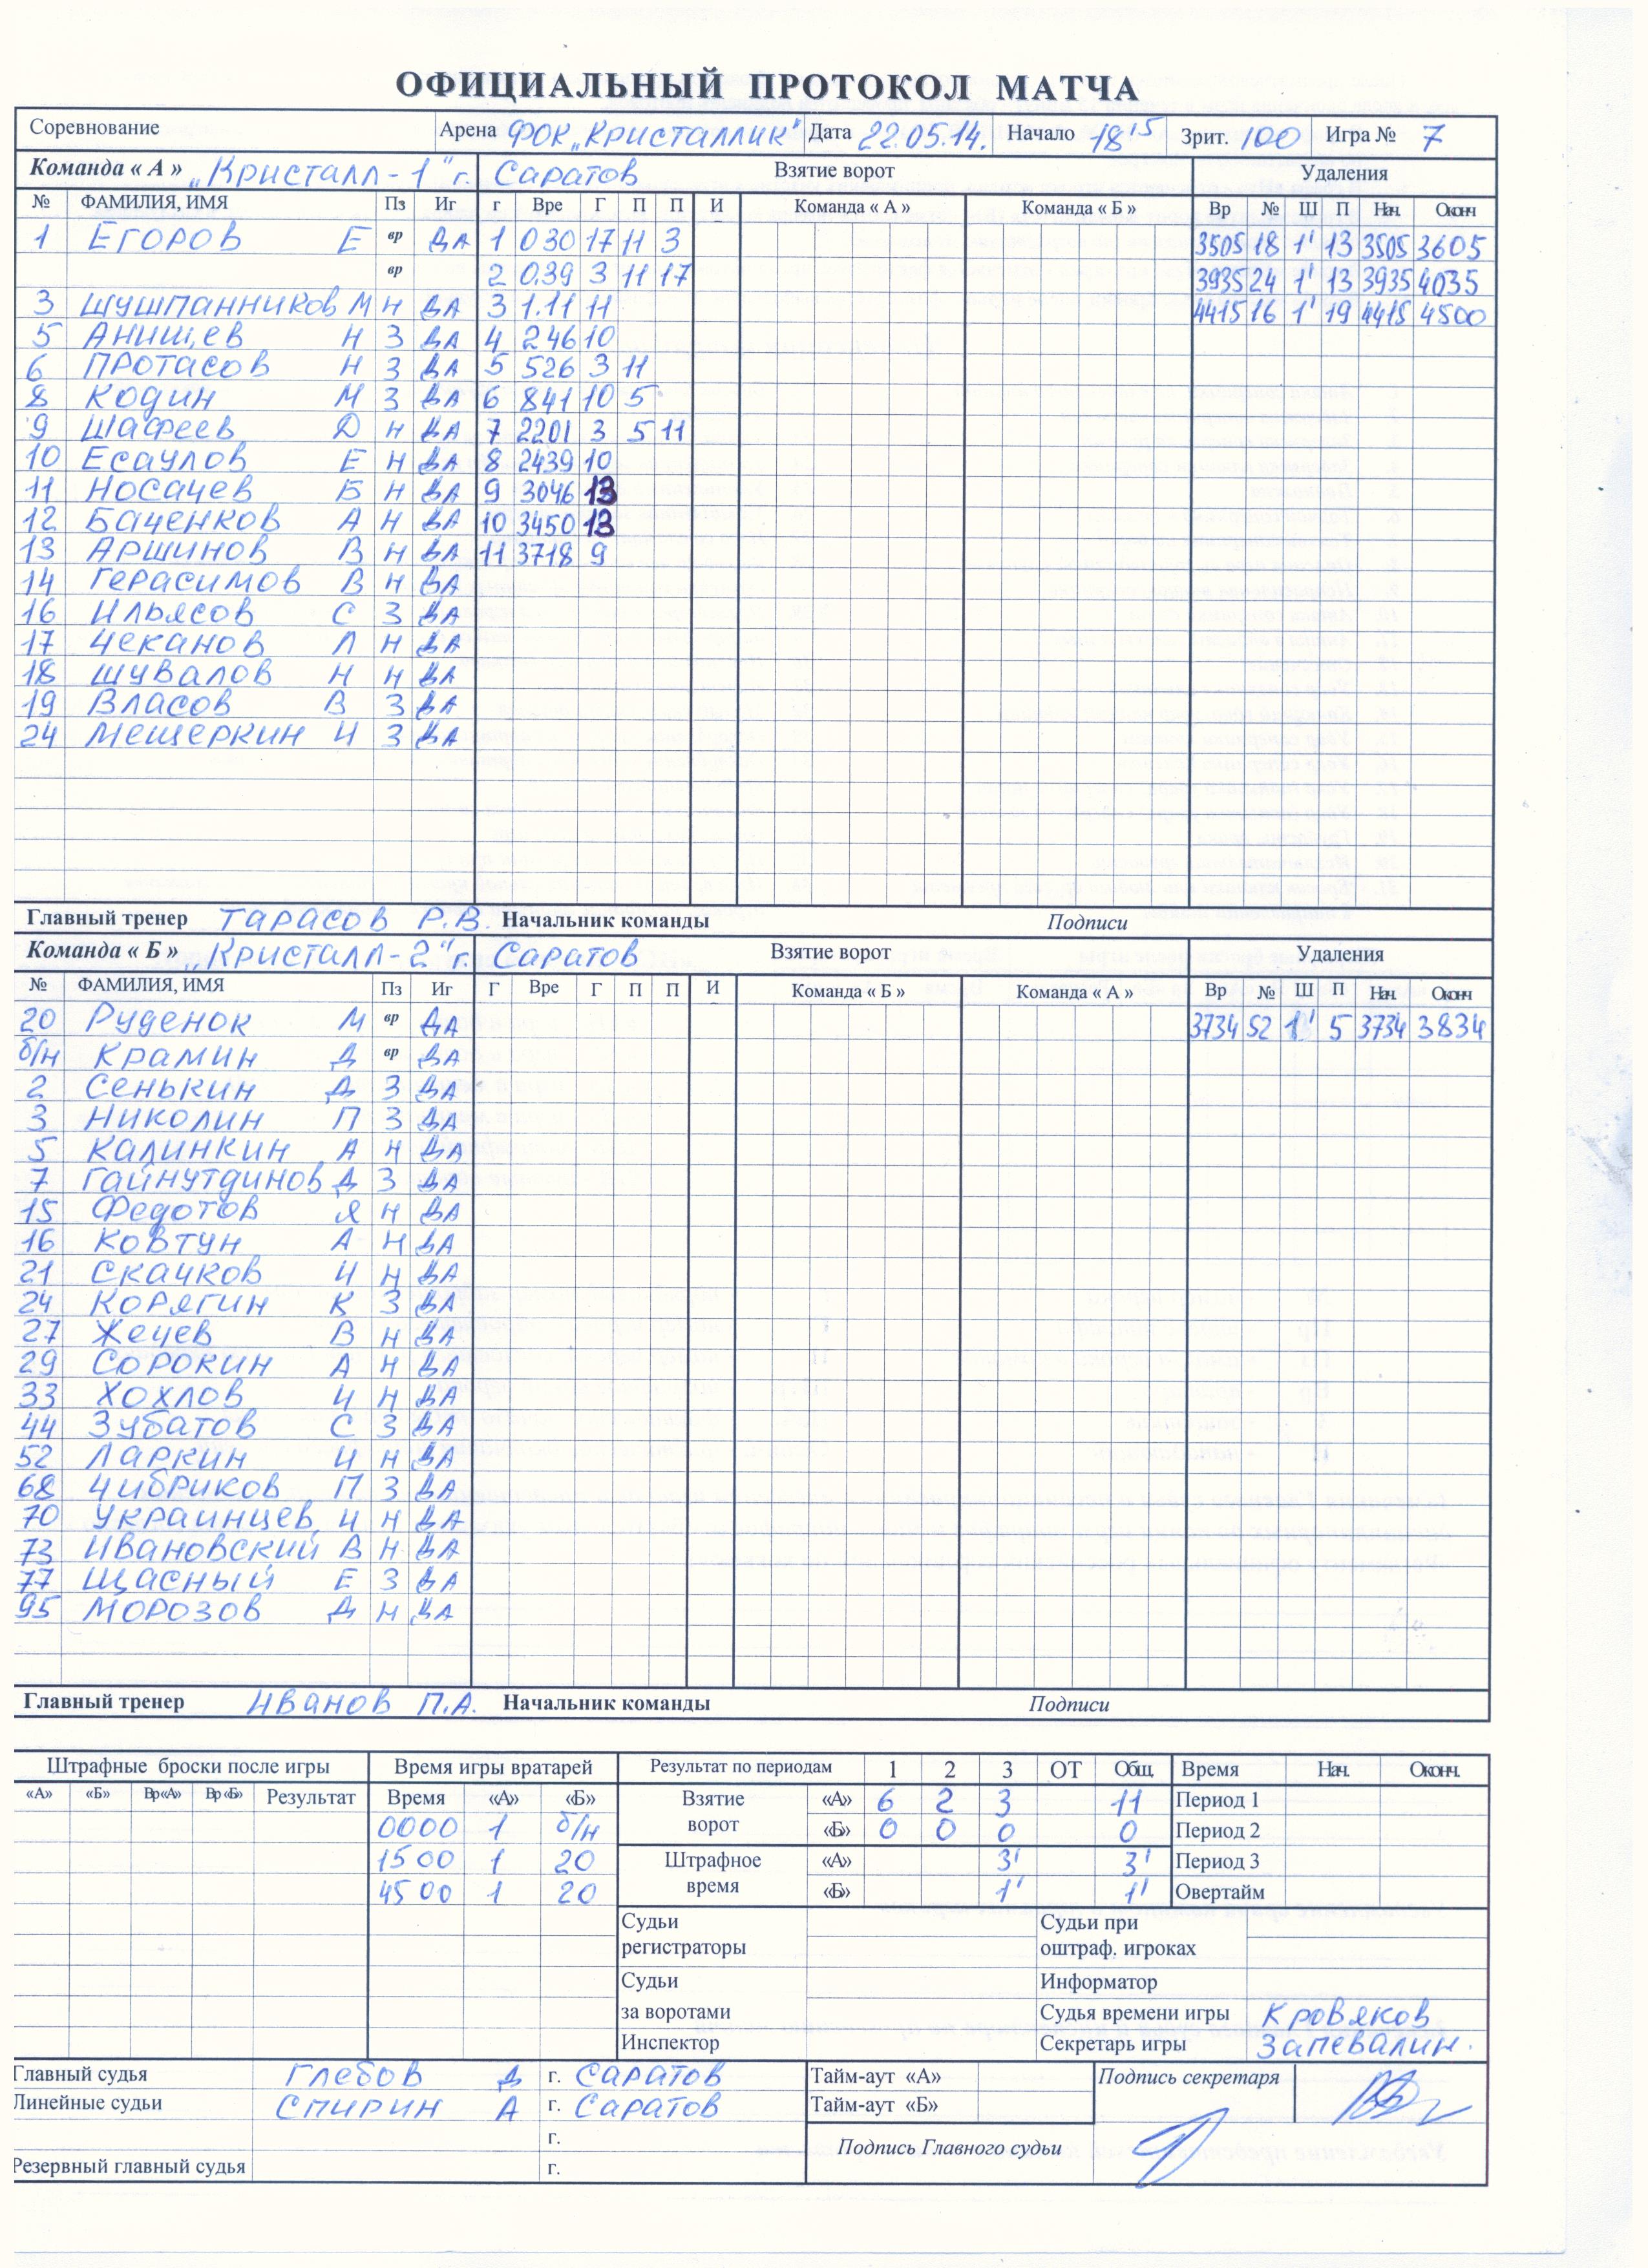 ОФИЦИАЛЬНЫЙ ПРОТОКОЛ МАТЧА
Соревнование Арена ФОК „Кристаллик" Дата 22.05.14. Начало 18 15 Зрит. 100 Игра № 7
Команда « А » „Кристалл-1" г. Саратов Взятие ворот Удаления
№ ФАМИЛИЯ, ИМЯ Пз Иг г Вре Г П П И Команда « А » Команда « Б » Вр № Ш П Нач. Оконч
1 Егоров Е вр ДА 1 030 17 11 3 3505 18 1' 13 3505 3605
вр 2 0.39 3 11 17 3935 24 1' 13 3935 4035
3 Шушпанников М Н ДА 3 1.11 11 4415 16 1' 19 4415 4500
5 Анищев Н З ДА 4 246 10
6 Протасов Н З ДА 5 526 3 11
8 Кодин М З ДА 6 841 10 5
9 Шафеев Д Н ДА 7 2201 3 5 11
10 Есаулов Е Н ДА 8 2439 10
11 Носачев Б Н ДА 9 3046 13
12 Баченков А Н ДА 10 3450 13
13 Аршинов В Н ДА 11 3718 9
14 Герасимов В Н ДА
16 Ильясов С З ДА
17 Чеканов Л Н ДА
18 Шувалов Н Н ДА
19 Власов В З ДА
24 Мещеркин И З ДА
Главный тренер Тарасов Р.В. Начальник команды Подписи
Команда « Б » „Кристалл-2" г. Саратов Взятие ворот Удаления
№ ФАМИЛИЯ, ИМЯ Пз Иг Г Вре Г П П И Команда « Б » Команда « А » Вр № Ш П Нач. Оконч
20 Руденок М вр ДА 3734 52 1' 5 3734 3834
б/н Крамин Д вр ДА
2 Сенькин Д З ДА
3 Николин П З ДА
5 Калинкин А Н ДА
7 Гайнутдинов Д З ДА
15 Федотов Я Н ДА
16 Ковтун А Н ДА
21 Скачков И Н ДА
24 Корягин К З ДА
27 Жечев В Н ДА
29 Сорокин А Н ДА
33 Хохлов И Н ДА
44 Зубатов С З ДА
52 Ларкин И Н ДА
68 Чибриков П З ДА
70 Украинцев И Н ДА
73 Ивановский В Н ДА
77 Щасный Е З ДА
95 Морозов Д Н ДА
Главный тренер Иванов П.А. Начальник команды Подписи
Штрафные броски после игры Время игры вратарей Результат по периодам 1 2 3 ОТ Общ. Время Нач. Оконч.
«А» «Б» Вр«А» Вр«Б» Результат Время «А» «Б» Взятие ворот «А» 6 2 3 11 Период 1
0000 1 б/н «Б» 0 0 0 0 Период 2
1500 1 20 Штрафное время «А» 3' 3' Период 3
4500 1 20 «Б» 1' 1' Овертайм
Судьи регистраторы Судьи при оштраф. игроках
Судьи Информатор
за воротами Судья времени игры Кровяков
Инспектор Секретарь игры Запевалин.
Главный судья Глебов Д г. Саратов Тайм-аут «А» Подпись секретаря
Линейные судьи Спирин А г. Саратов Тайм-аут «Б»
г.
Подпись Главного судьи
Резервный главный судья г.